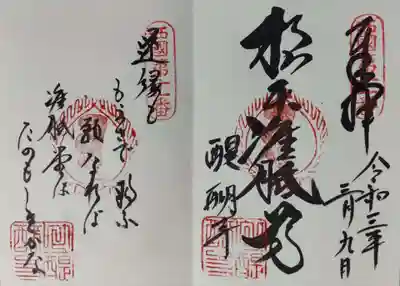 西國第十一番
奉拝
令和三年
二月九日
根本准胝尊
醍醐寺
西國第十一番
逆縁も
もらさで救ふ
願なれば
准胝堂は
たのもしきかな